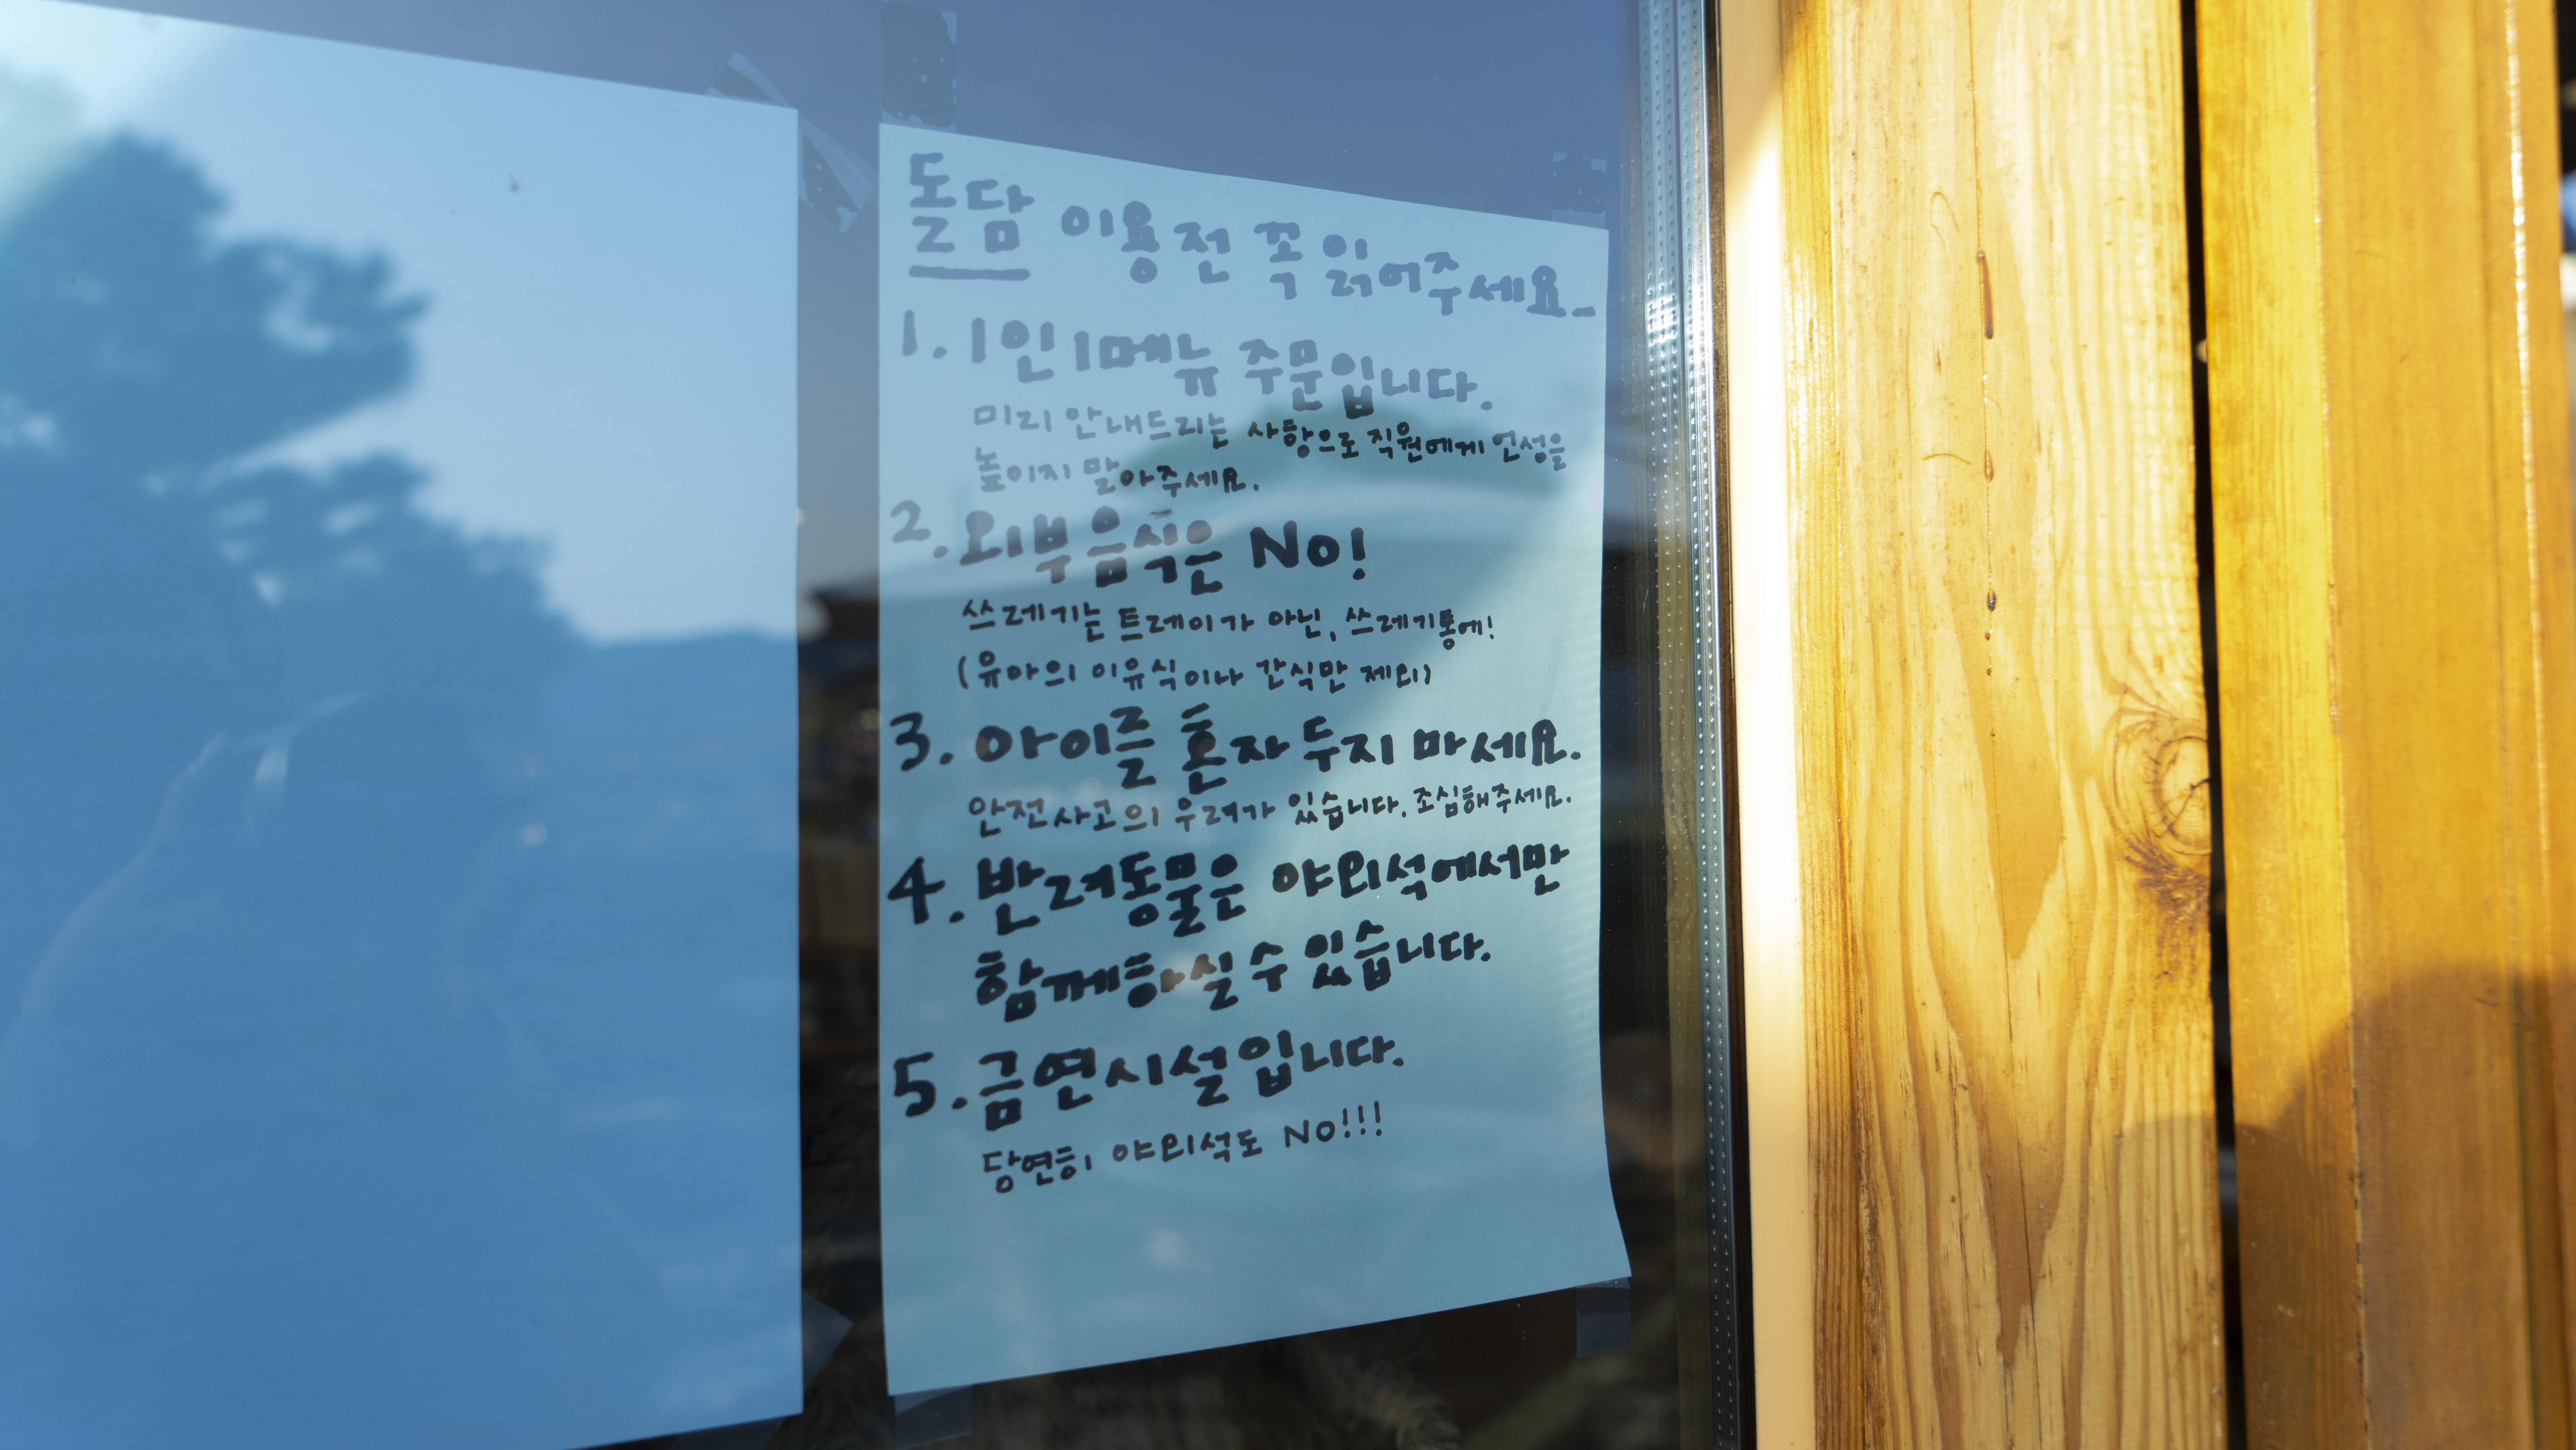 돌담 이용전 꼭 읽어주세요_
1. 1인 1메뉴 주문입니다.
미리 안내드리는 사항으로 직원에게 언성을
높이지 말아주세요.
2. 외부음식은 NO!
쓰레기는 트레이가 아닌, 쓰레기통에!
(유아의 이유식이나 간식만 제외)
3. 아이를 혼자 두지 마세요.
안전사고의 우려가 있습니다. 조심해주세요.
4. 반려동물은 야외석에서만
함께하실 수 있습니다.
5. 금연시설입니다.
당연히 야외석도 NO!!!